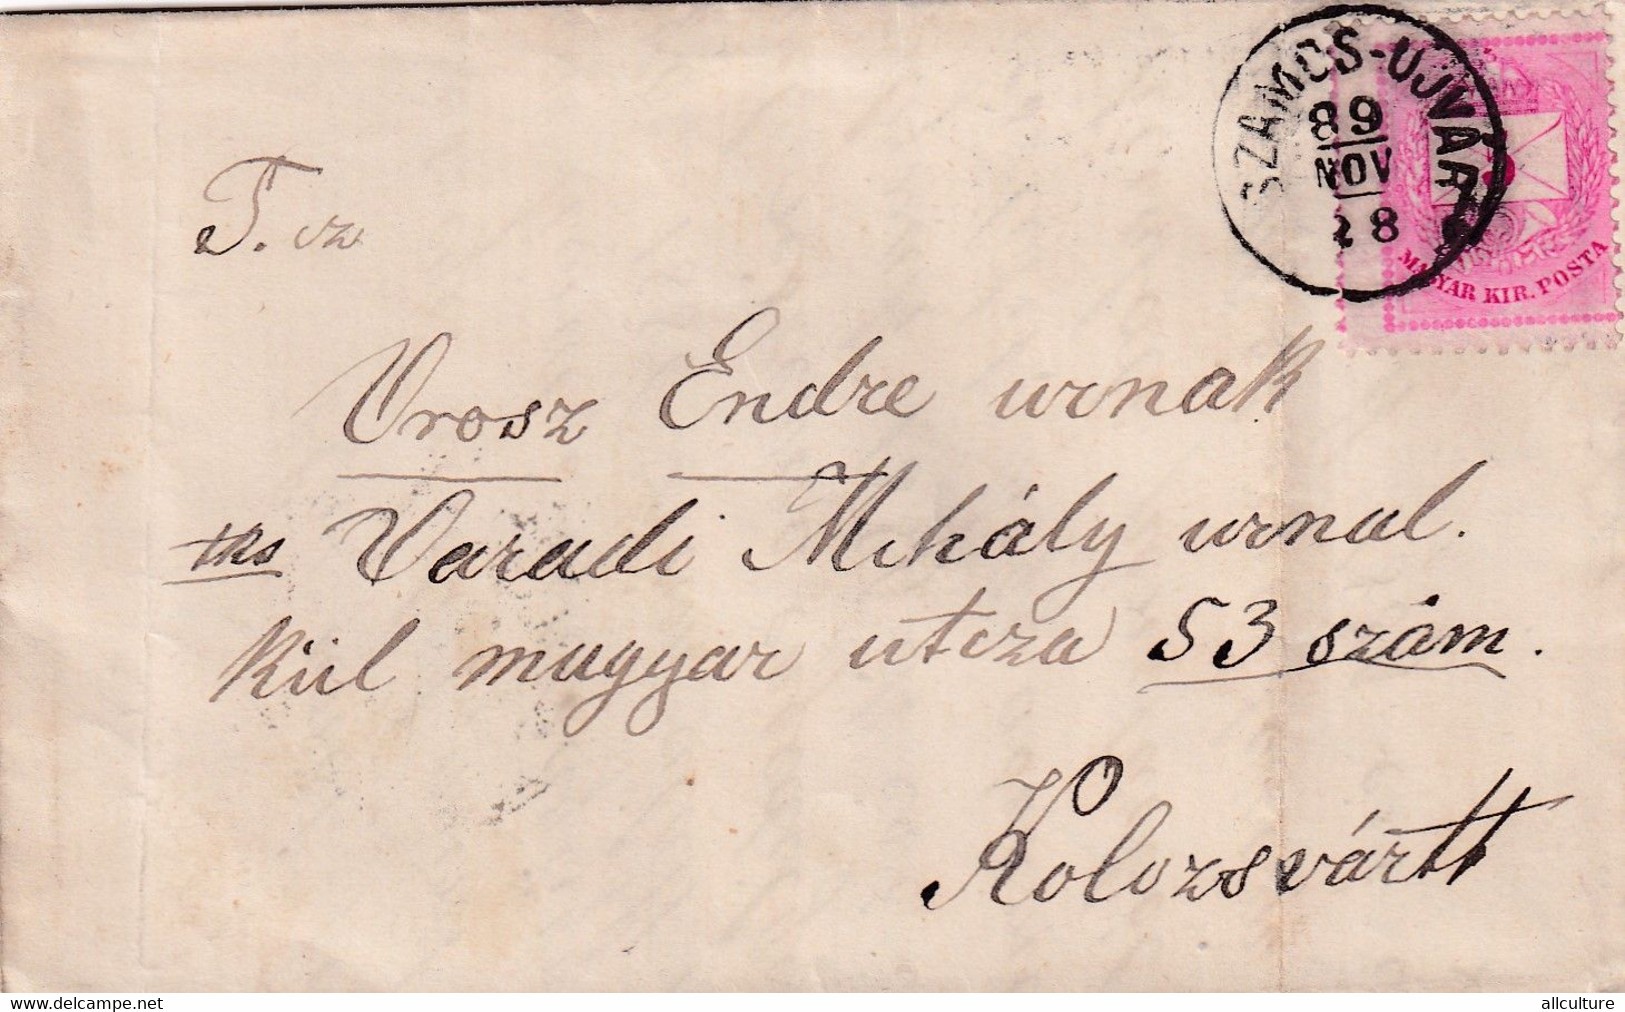 SZAMOS-UJVÁR
89
NOV
28
MAGYAR KIR. POSTA
T. cz
Orosz Endre urnak
tks Varadi Mihály urnál.
Kül magyar utcza 53 szám.
Kolozsvártt
www.delcampe.net
allculture